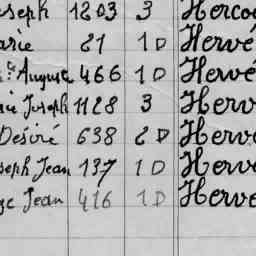 oseph 1203 3 Herco
arie 21 1 D Hervé
Auguste 466 1 D Hervé
Joseph 1128 3 Herv
Désiré 638 2 D Herv
seph Jean 137 1 D Herv
Jean 416 1 D Herve